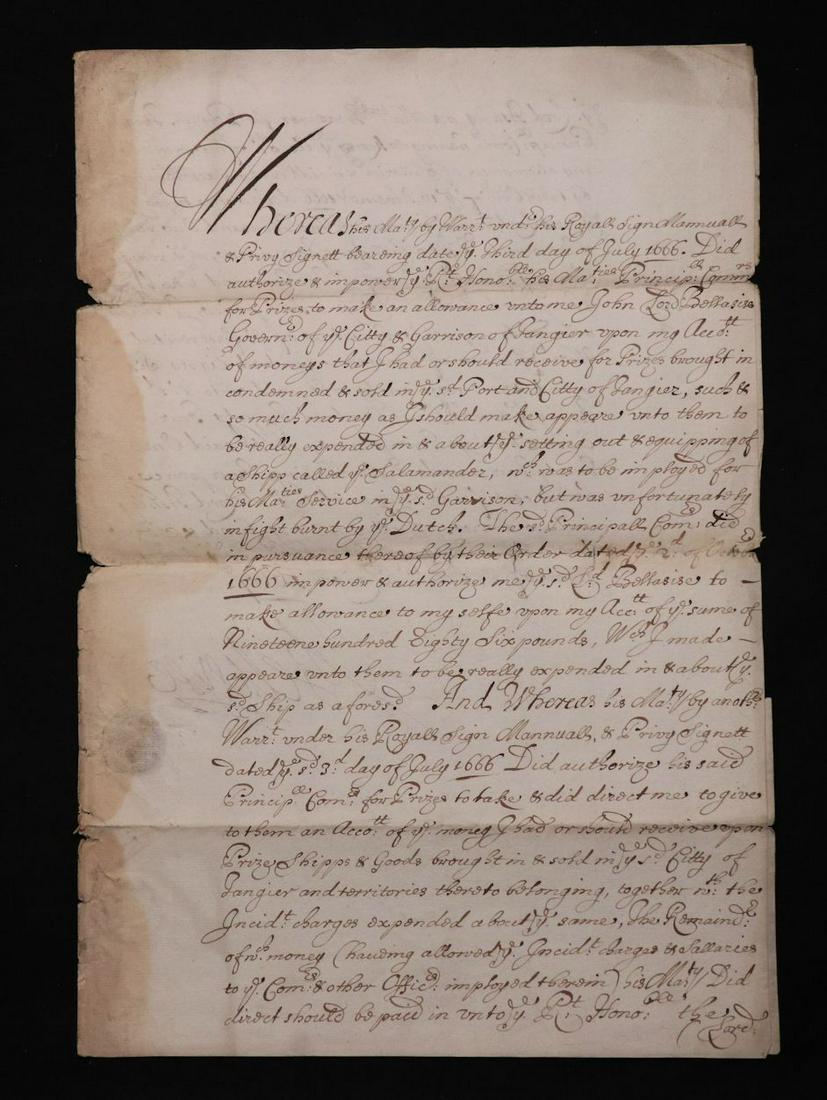 Whereas his Ma:ty by Warr:t vnd:r his Royall Sign Mannuall
& Privy Signett bearing date ye: Third day of July 1666. Did
authorize & impower ye: Rt: Hono:ble his Ma:ties Principll: Comrs
for Prizes, to make an allowance vnto me John Lord Bellasise
Governr: of ye: Citty & Garrison of Tangier vpon my Acco:tt
of moneys that I had or should receive for Prizes brought in
condemned & sold in ye: sd: Port and Citty of Tangier, such &
so much money as I should make appeare vnto them to
be really expended in & about ye: setting out & equipping of
a Shipp called ye: Salamander, wch: was to be imployed for
his Ma:ties Service in ye: sd: Garrison, but was vnfortunately
in fight burnt by ye: Dutch. The sd: Principall Comrs: did
in pursuance thereof by their Order dated ye: 2d: of Octobr
1666 impower & authorize me ye: sd: Ld: Bellasise to –
make allowance to my selfe vpon my Acc:tt of ye: sume of
Nineteene hundred Eighty Six pounds, Wch I made –
appeare vnto them to be really expended in & about ye:
sd: Ship as aforesd: And Whereas his Ma:ty by anothr
Warr:t vnder his Royall Sign Mannuall, & Privy Signett
dated ye: sd: 3d: day of July 1666 Did authorize his said
Principll: Comrs: for Prizes to take & did direct me to give
to them an Acco:tt of ye: money I had or should receive vpon
Prize Shipps & Goods brought in & sold in ye: sd: Citty of
Tangier and territories thereto belonging, together wth: the
Incidt: charges expended about ye: same, The Remaindr:
of wch: money (haueing allowed ye: Incidt: charges & Sallaries
to ye: Comrs: & other Officrs: imployed therein) his Ma:ty Did
direct should be paid in vnto ye: Rt: Hono:ble the
Lord: